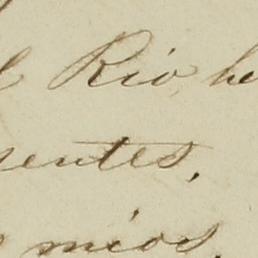 l Rio, he
sentes,
mios,